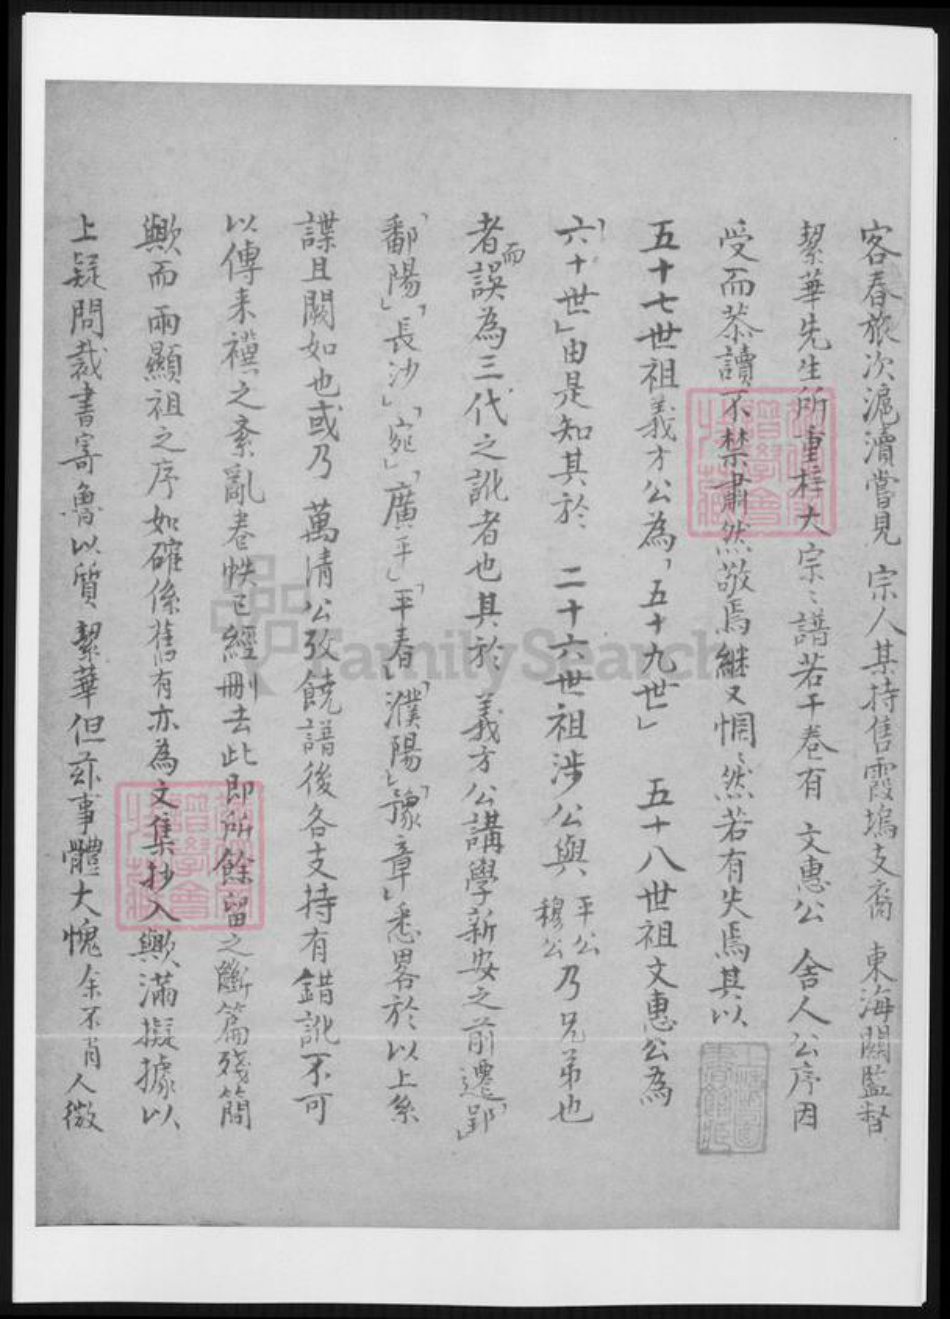 客春旅次滬瀆嘗見 宗人某持售霞塢支裔 東海關監督
絜華先生所重梓大宗〻譜若干卷有 文惠公 舍人公序因
受而恭讀不禁肅然敬焉繼又惘〻然若有失焉其以
五十七世祖義方公為「五十九世」 五十八世祖文惠公為
「六十世」由是知其於 二十六世祖涉公與 平公 穆公 乃兄弟也
者而誤為三代之訛者也其於 義方公講學新安之前遷「郢」
「鄱陽」「長沙」「宛」「廣平」「平春」「濮陽」「豫章」悉畧於以上系
諜且闕如也或乃 萬清公攷饒譜後各支持有錯訛不可
以傳來禩之紊亂卷帙已經刪去此即所餘留之斷篇殘簡
歟而 兩顯祖之序如確係舊有亦為文集抄入歟滿擬據以
上疑問裁書寄魯以質 絜華但茲事體大愧余不肖人微
FamilySearch